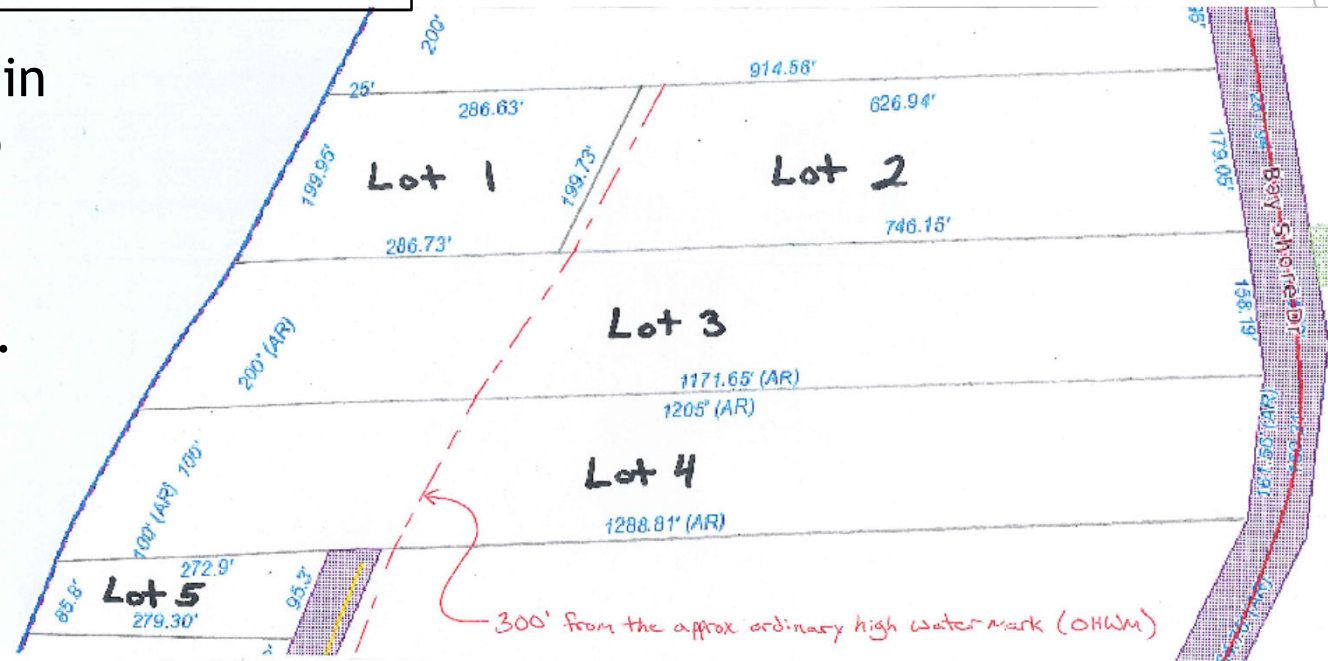 in
200'
25'
914.56'
286.63'
626.94'
199.95'
Lot 1
199.73'
Lot 2
179.05'
286.73'
746.15'
Bay Shore Dr
200' (AR)
Lot 3
158.19'
1171.65' (AR)
1205' (AR)
100' (AR) 100'
Lot 4
161.56' (AR)
1288.81' (AR)
272.9'
85.8'
Lot 5
95.3'
279.30'
300' from the approx ordinary high water mark (OHWM)